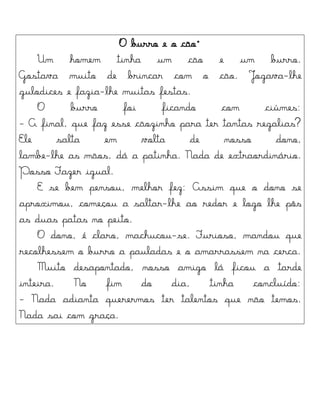 O burro e o cão*
Um homem tinha um cão e um burro.
Gostava muito de brincar com o cão. Jogava-lhe
gulodices e fazia-lhe muitas festas.
O burro foi ficando com ciúmes:
- A final, que faz esse cãozinho para ter tantas regalias?
Ele salta em volta de nosso dono,
lambe-lhe as mãos, dá a patinha. Nada de extraordinário.
Posso Fazer igual.
E se bem pensou, melhor fez: Assim que o dono se
aproximou, começou a saltar-lhe ao redor e logo lhe pôs
as duas patas no peito.
O dono, é claro, machucou-se. Furioso, mandou que
recolhessem o burro a pauladas e o amarrassem na cerca.
Muito desapontado, nosso amigo lá ficou a tarde
inteira. No fim do dia, tinha concluído:
- Nada adianta querermos ter talentos que não temos.
Nada sai com graça.